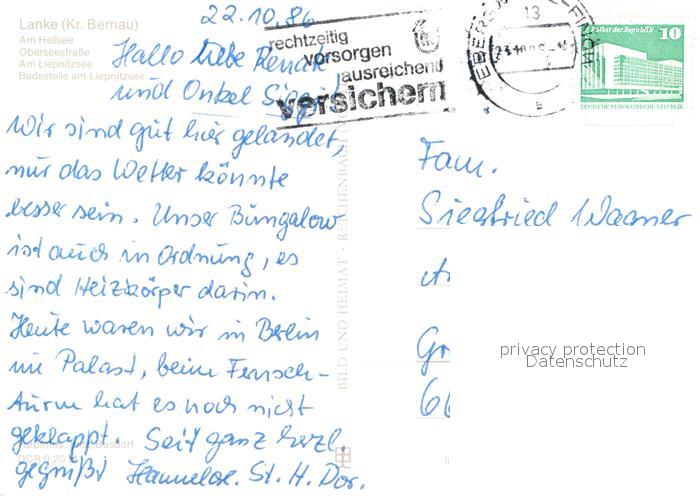 22.10.86
Lanke (Kr. Bernau)
Am Hellsee
Oberseestraße
Am Liepnitzsee
Badestelle am Liepnitzsee
Hallo liebe Renate
und Onkel
Wir sind gut hier gelandet,
nur das Wetter könnte
besser sein. Unser Bungalow
ist auch in Ordnung, es
sind Heizkörper darin.
Heute waren wir in Berlin
im Palast, beim Fernseh-
turm hat es noch nicht
geklappt. Seit ganz herzl.
gegrüßt Hannelore. St. H. Dor.
rechtzeitig
vorsorgen
ausreichend
versichern
13
Palast der Republik 10
DEUTSCHE DEMOKRATISCHE REPUBLIK
BILD UND HEIMAT · REICHENBACH
Fam.
Siegfried Wagner
privacy protection
Datenschutz